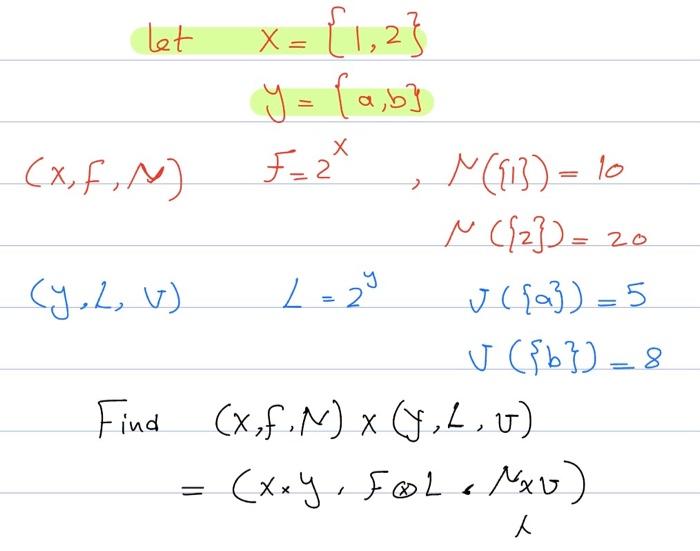 let X = {1,2}
y = {a,b}
(X, F, μ) F = 2^X , μ({1}) = 10
μ({2}) = 20
(y, L, υ) L = 2^y υ({a}) = 5
υ({b}) = 8
Find (X, F, μ) × (y, L, υ)
= (X × y, F ⊗ L, μ × υ)
λ